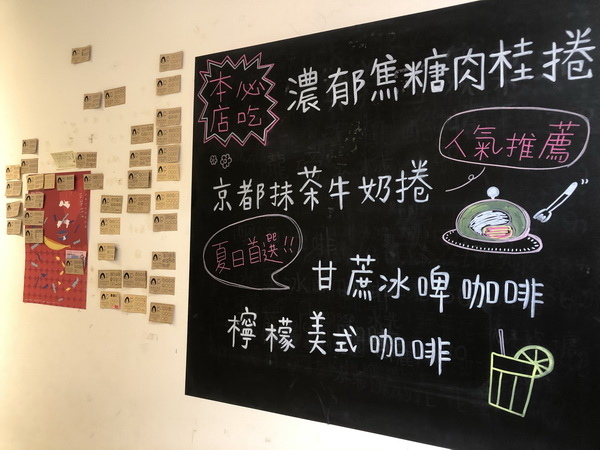 本店必吃
濃郁焦糖肉桂捲
人氣推薦
京都抹茶牛奶捲
夏日首選!!
甘蔗冰啤咖啡
檸檬美式咖啡